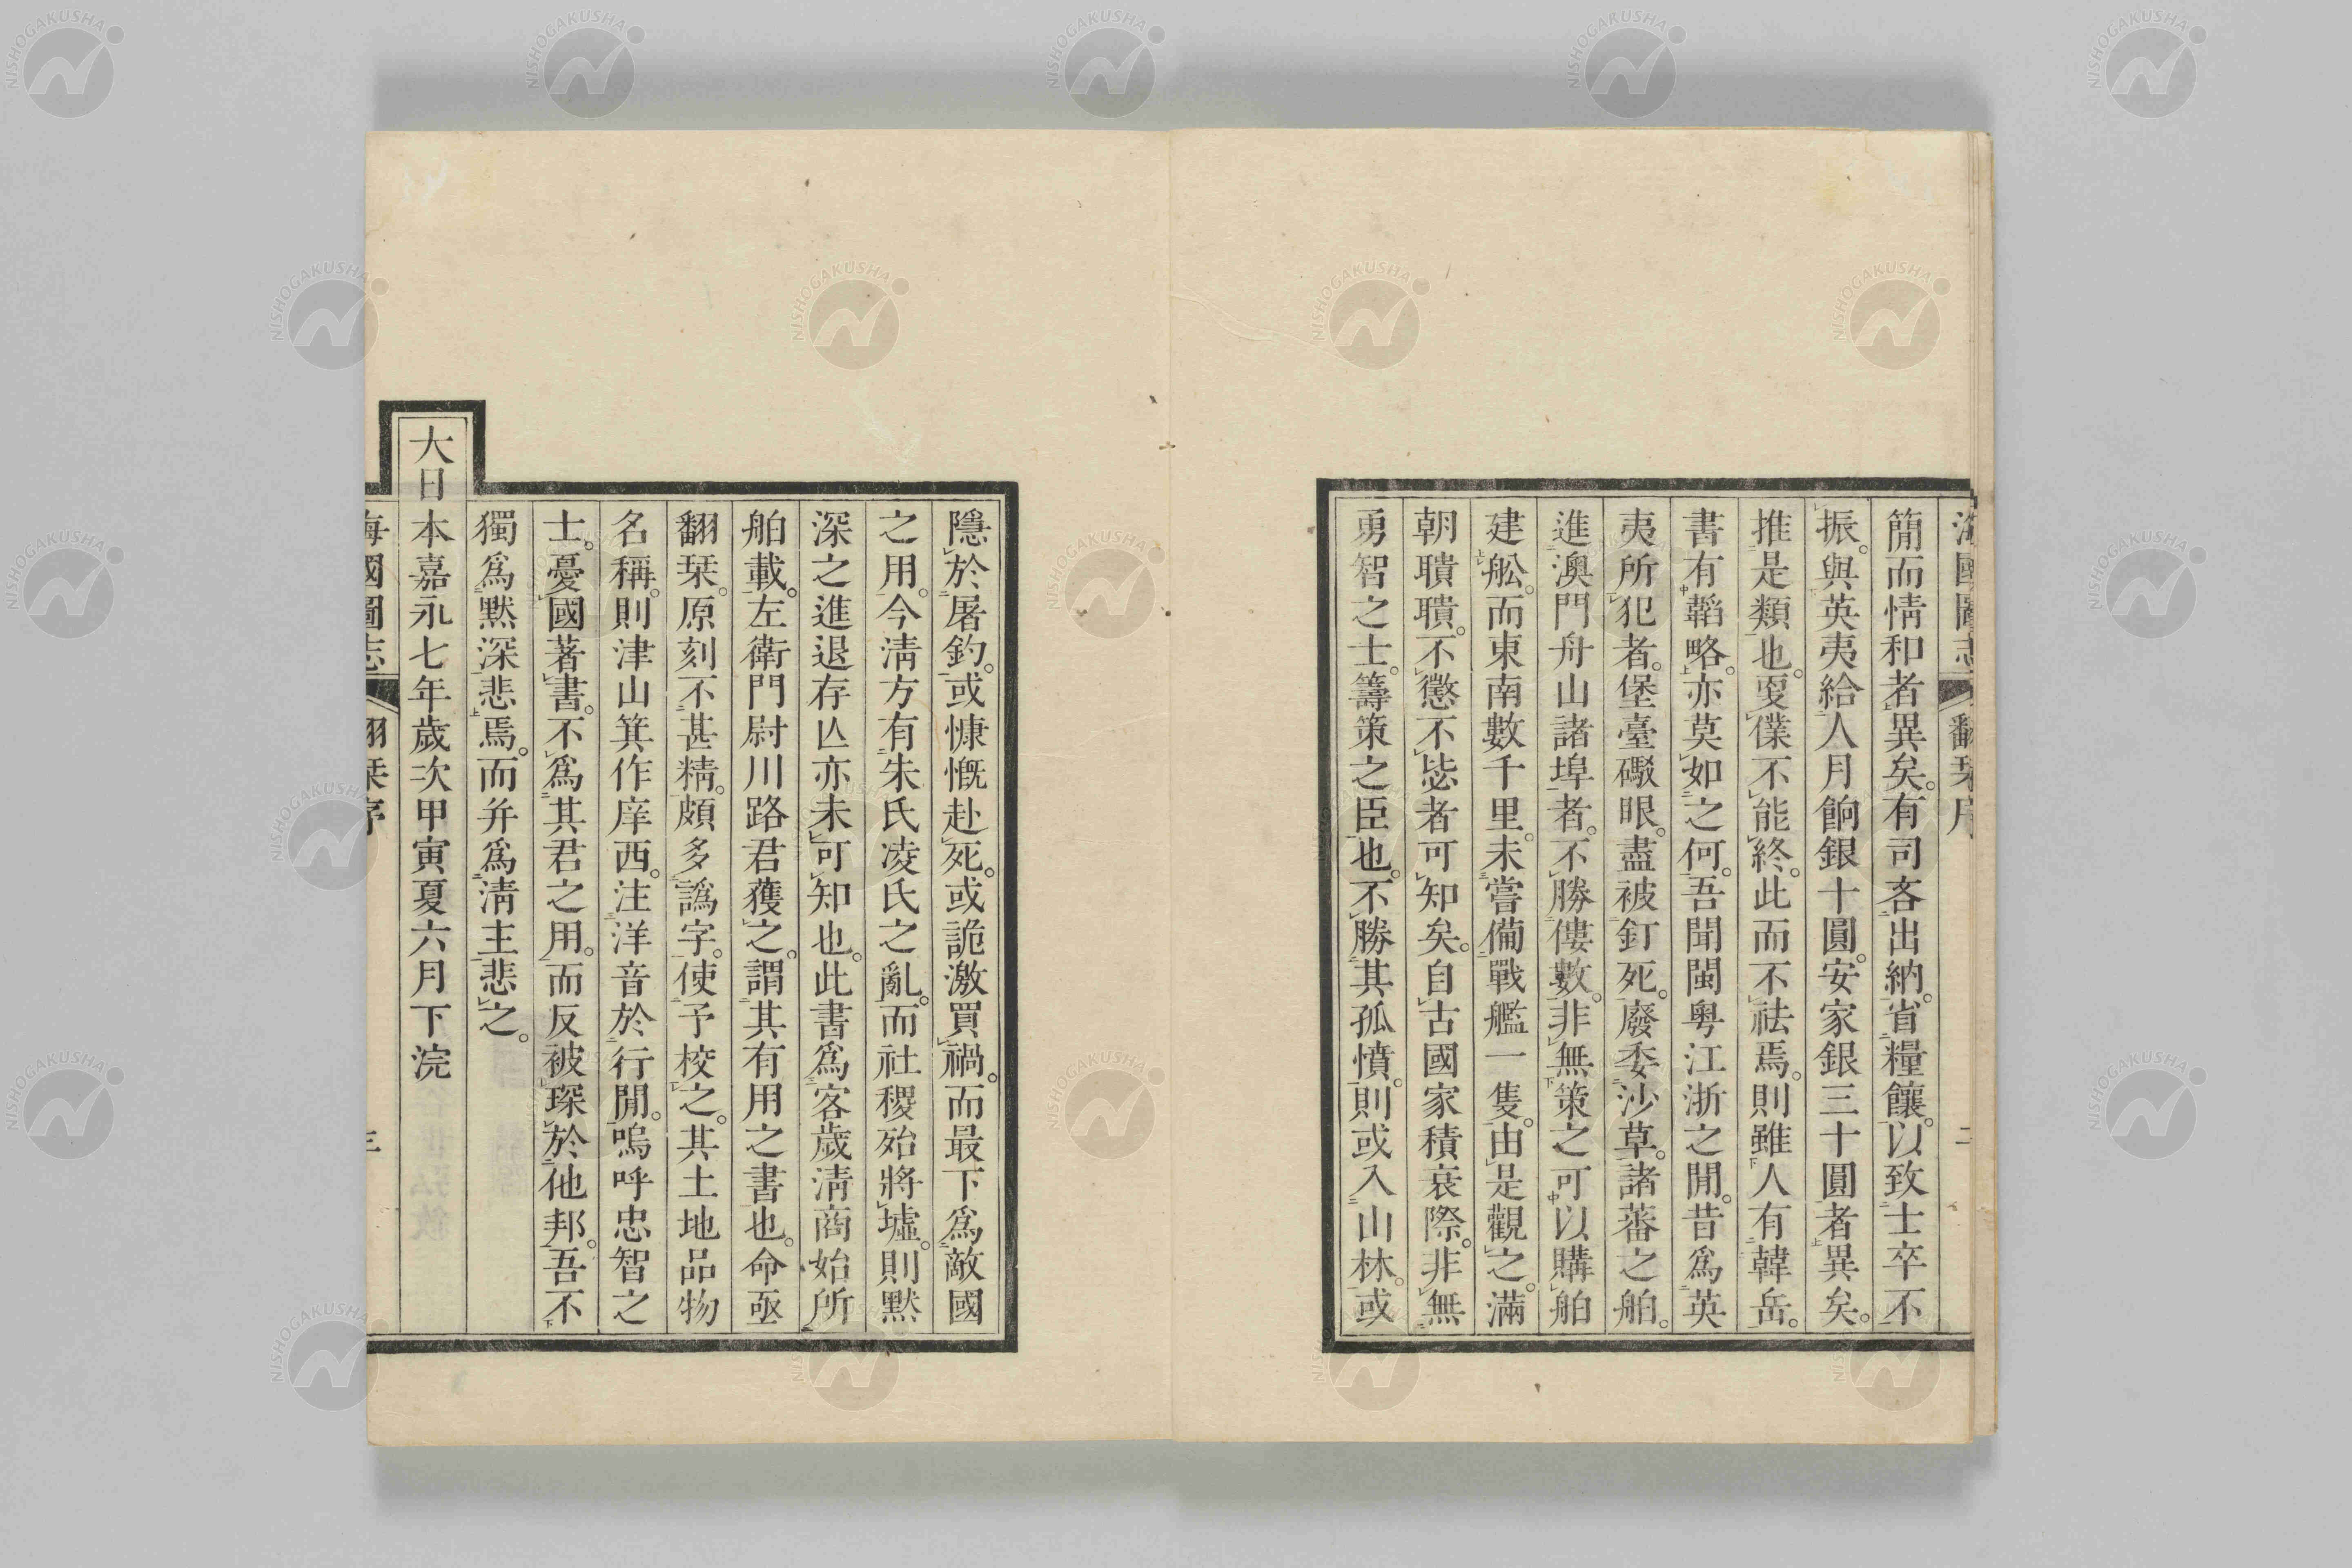 海國圖志 翻栞序 二
簡而情和者異矣。有司吝出納。省糧饟。以致士卒不
振。與英夷給人月餉銀十圓。安家銀三十圓者異矣。
推是類也。更僕不能終。此而不祛焉。則雖人有韓岳。
書有韜略。亦莫如之何。吾聞閩粵江浙之閒。昔爲英
夷所犯者。堡臺礮眼。盡被釘死。廢委沙草。諸蕃之舶。
進澳門舟山諸埠者。不勝僂數。非無策之可以購舶
建舩。而東南數千里。未嘗備戰艦一隻。由是觀之。滿
朝聵聵。不懲不毖者可知矣。自古國家積衰際。非無
勇智之士。籌策之臣也。不勝其孤憤。則或入山林。或
隱於屠釣。或慷慨赴死。或詭激買禍。而最下爲敵國
之用。今淸方有朱氏凌氏之亂。而社稷殆將墟。則默
深之進退存亾亦未可知也。此書爲客歲淸商始所
舶載。左衛門尉川路君獲之。謂其有用之書也。命亟
翻栞。原刻不甚精。頗多譌字。使予校之。其土地品物
名稱。則津山箕作庠西。注洋音於行閒。嗚呼忠智之
士。憂國著書。不爲其君之用。而反被琛於他邦。吾不
獨爲默深悲焉。而幷爲淸主悲之。
大日本嘉永七年歲次甲寅夏六月下浣
海國圖志 翻栞序 三
NISHOGAKUSHA